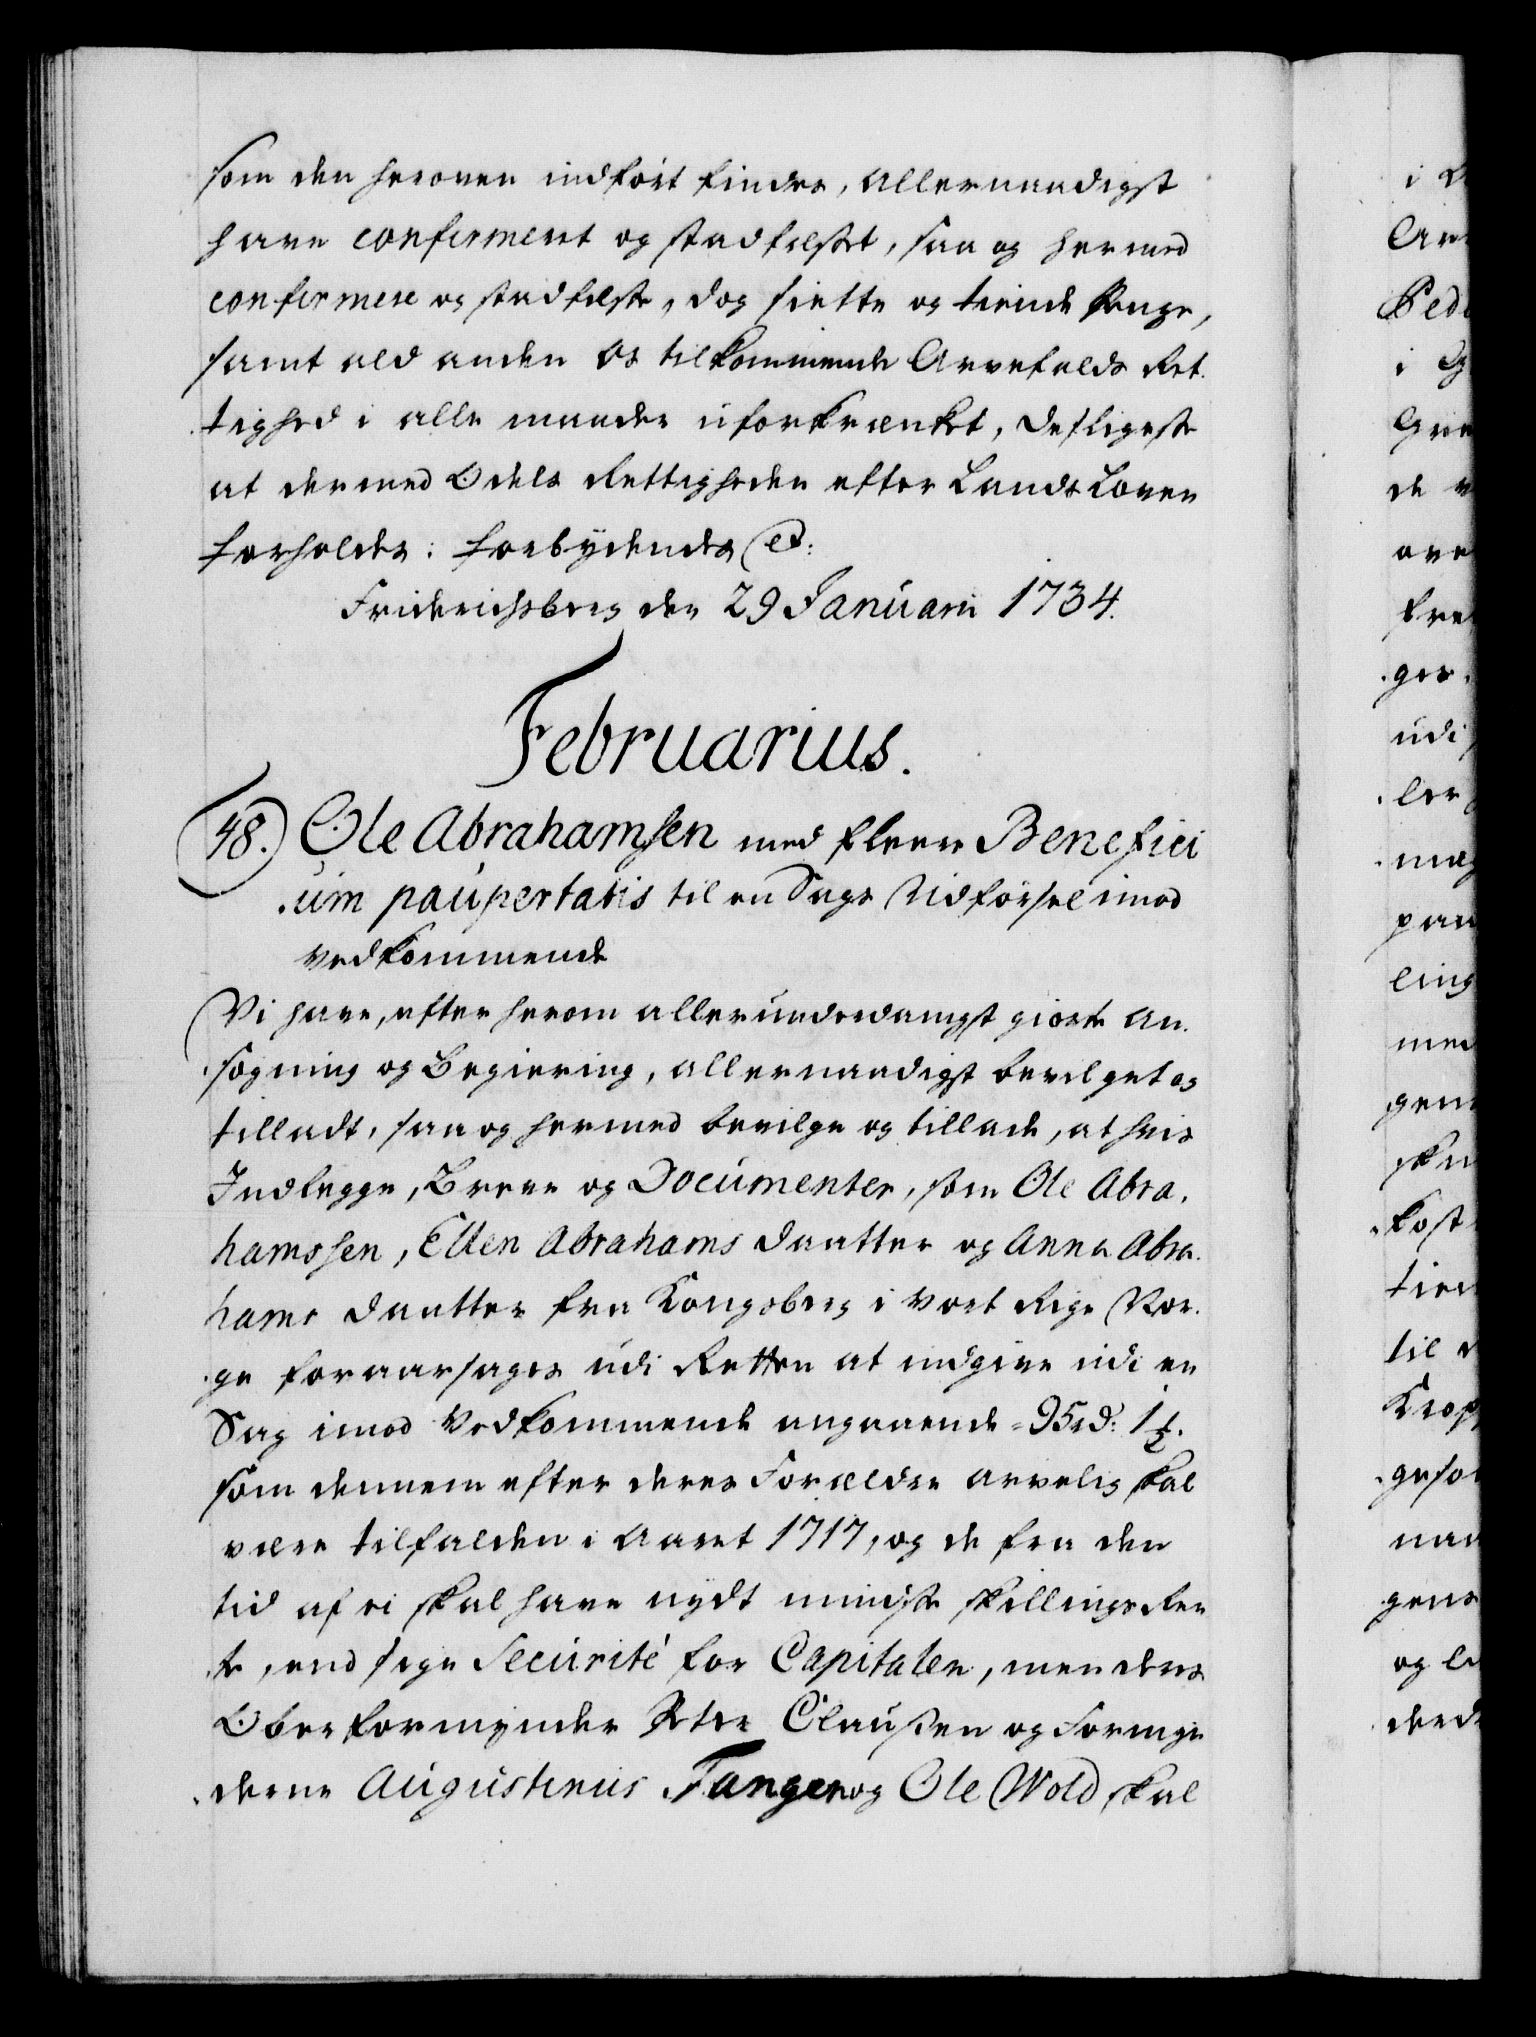 som den heroven indført findes, allernaadigst
have confirmeret og stadfæstet, saa og hermed
confirmere og stadfæste, dog siette og tiende Penge,
samt ald anden os tilkommende Arvefalds Ret-
tighed i alle maader uforkrænket, desligeste
at dermed Odels Rettigheden efter Lands Loven
forholdes. forbydendes et:
Friderichsberg den 29 Januarii 1734.
Februarius.
48. Ole Abrahamsen med fleere Benefici
-um paupertatis til en Sags Udførsel imod
vedkommende
Vi have, efter herom allerunderdanigst giorte An-
søgning og Begiering, allernaadigst bevilget og
tilladt, saa og hermed bevilge og tillade, at hvis
Indlegge, Breve og Documenter, som Ole Abra-
hamssen, Ellen Abrahams Daatter og Anna Abra-
hams Daatter fra Kongsberg i vort Rige Nor-
-ge foraarsages udi Retten at indgive udi en
Sag imod Vedkommende angaaende 95rd: 1½.
som dennem efter deres Forældre arvelig skal
være tilfalden i Aaret 1717, og de fra den
tid af ei skal have nydt mindste skillings Ren
-te, end sige Securité for Capitalen, men deres
Oberformynder Peter Claussen og Formyn
-derne Augustinus Tangen og Ole Wold skal